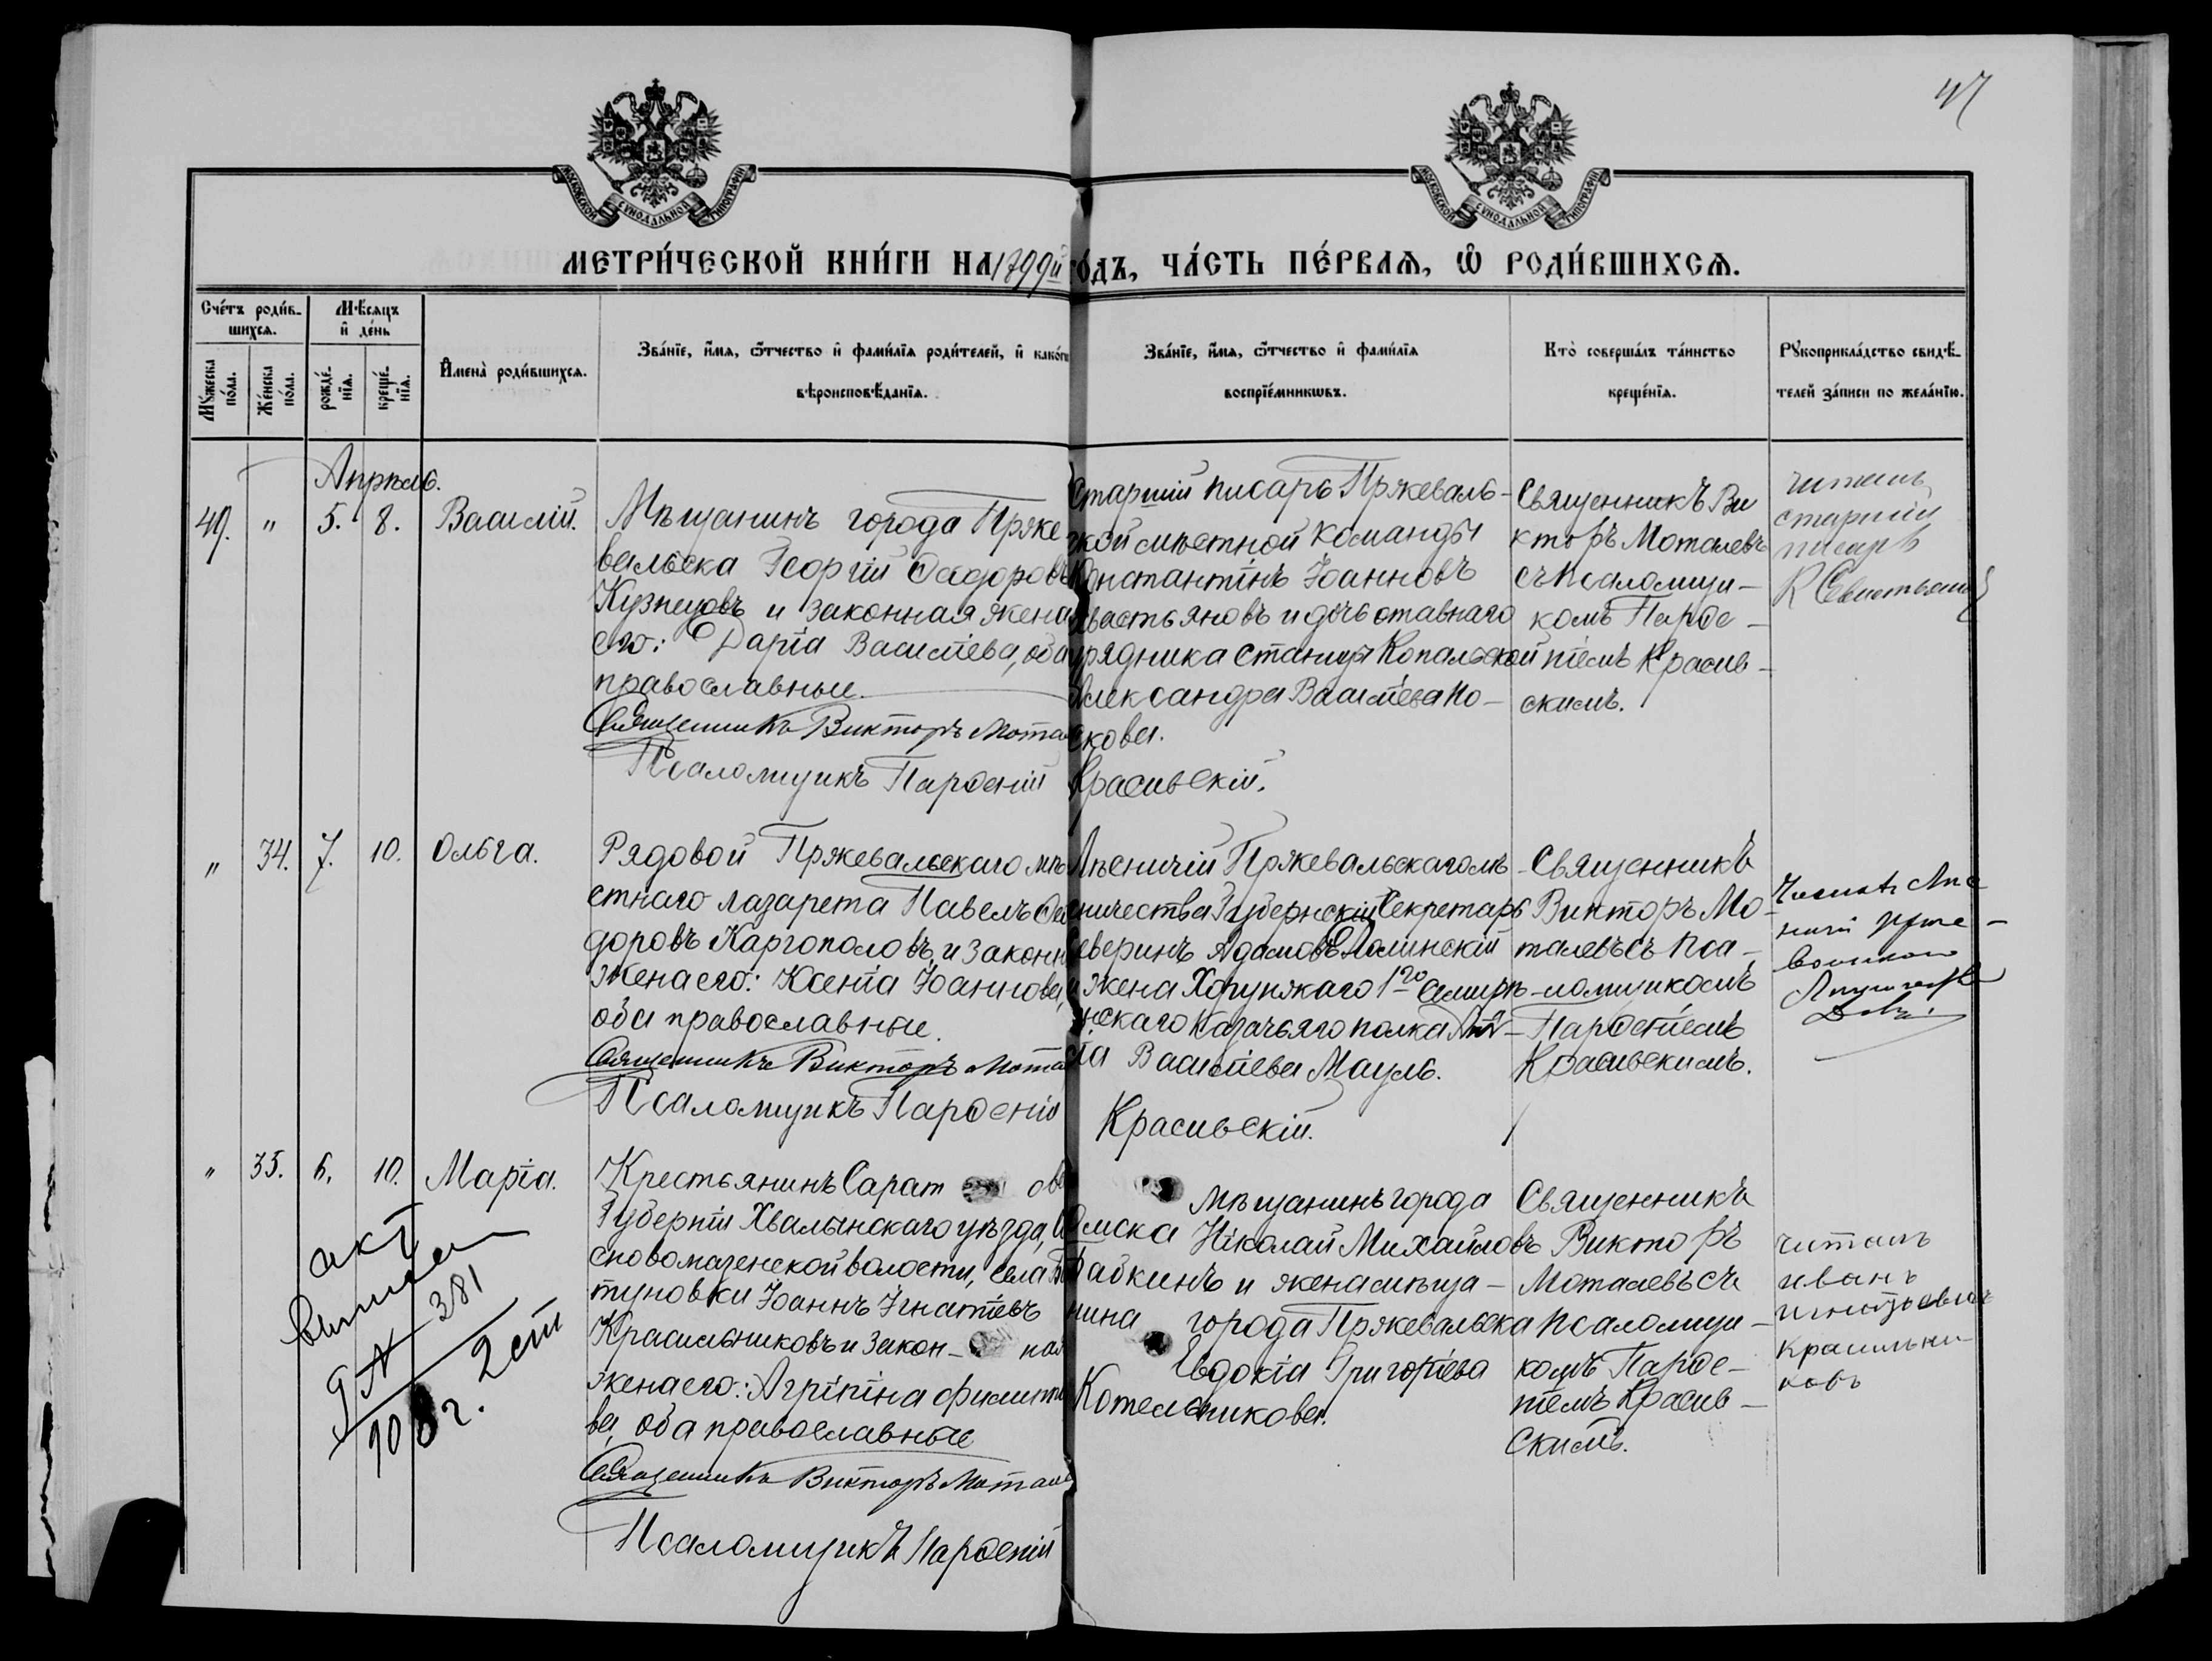 47
МОСКОВСКОЙ СУНОДАЛЬНОЙ ТИПОГРАФІИ
МОСКОВСКОЙ СУНОДАЛЬНОЙ ТИПОГРАФІИ
МЕТРИ́ЧЕСКОЙ КНИ́ГИ НА 1899й го́дъ, ЧА́СТЬ ПЕ́РВАѦ, Ѡ РОДИ́ВШИХСѦ.
Сче́тъ роди́в-
шихсѧ.
Мѣ́сѧцъ
и҆ де́нь
Мꙋ́жеска
по́ла.
Же́нска
по́ла.
рожде́-
нїѧ.
креще́-
нїѧ.
И҆мена̀ роди́вшихсѧ.
Зва́нїе, и҆́мѧ, ѻ҆́тчество и҆ фами́лїѧ роди́телей, и҆ како́гѡ
вѣроисповѣ́данїѧ.
Зва́нїе, и҆́мѧ, ѻ҆́тчество и҆ фами́лїѧ
воспрїе́мникѡвъ.
Кто̀ соверша́лъ та́инство
креще́нїѧ.
Рꙋкоприкла́дство свидѣ́-
телей за́писи по жела́нїю.
Апрѣль.
49. " 5. 8. Василій.
Мѣщанинъ города Прже-
вальска Георгій Ѳедоровъ
Кузнецовъ и законная жена
его: Дарія Василіева, оба
православные.
Священникъ Викторъ
Псаломщикъ Парѳеній Красивскій.
Старшій писарь Пржеваль-
ской мѣстной команды
Константінъ Іоанновъ
Севастьяновъ и дочь отавнаго
урядника станицы Копальской
Александра Василіева Но-
скова.
Священникъ Ви
кторъ Моталевъ
съ псаломщи-
комъ Парѳе-
ніемъ Красив-
скимъ.
читалъ
старшій
писарь
К Севастьянов
" 34. 7. 10. Ольга.
Рядовой Пржевальскаго мѣ-
стнаго лазарета Павелъ Ѳе
доровъ Каргополовъ и законн
жена его: Ксенія Іоаннова,
оба православные.
Священникъ Викторъ
Псаломщикъ Парѳеній Красивскій.
Лѣсничій Пржевальскаго лѣ-
сничества Губернскій Секретарь
Северинъ Адамовъ
и жена Хорунжаго 1го Семирѣ-
ченскаго казачьяго полка
Василіева Мауль.
Священникъ
Викторъ Мо-
талевъ съ пса-
ломщикомъ
Парѳеніемъ
Красивскимъ.
" 35. 6. 10. Марія.
Крестьянинъ Сарат ов
Губерніи Хвалынскаго уѣзда,
сновомазенской волости, села
туновки Іоаннъ Ігнатіевъ
Красильниковъ и закон- ная
жена его: Агріпіна Филипо
ва, оба православные
Священникъ Викторъ
Псаломщикъ Парѳеній
Мѣщанинъ города
Омска Ніколай Михайловъ
Бабкинъ и жена мѣща-
нина города Пржевальска
Евдокія Григоріева
Котельникова.
Священникъ
Викторъ
Моталевъ съ
псаломщи-
комъ Парѳе-
ніемъ Красив-
скимъ.
читалъ
иванъ
игнатьевичъ
красильни
ковъ
акт
выписан
№ 381
908г.